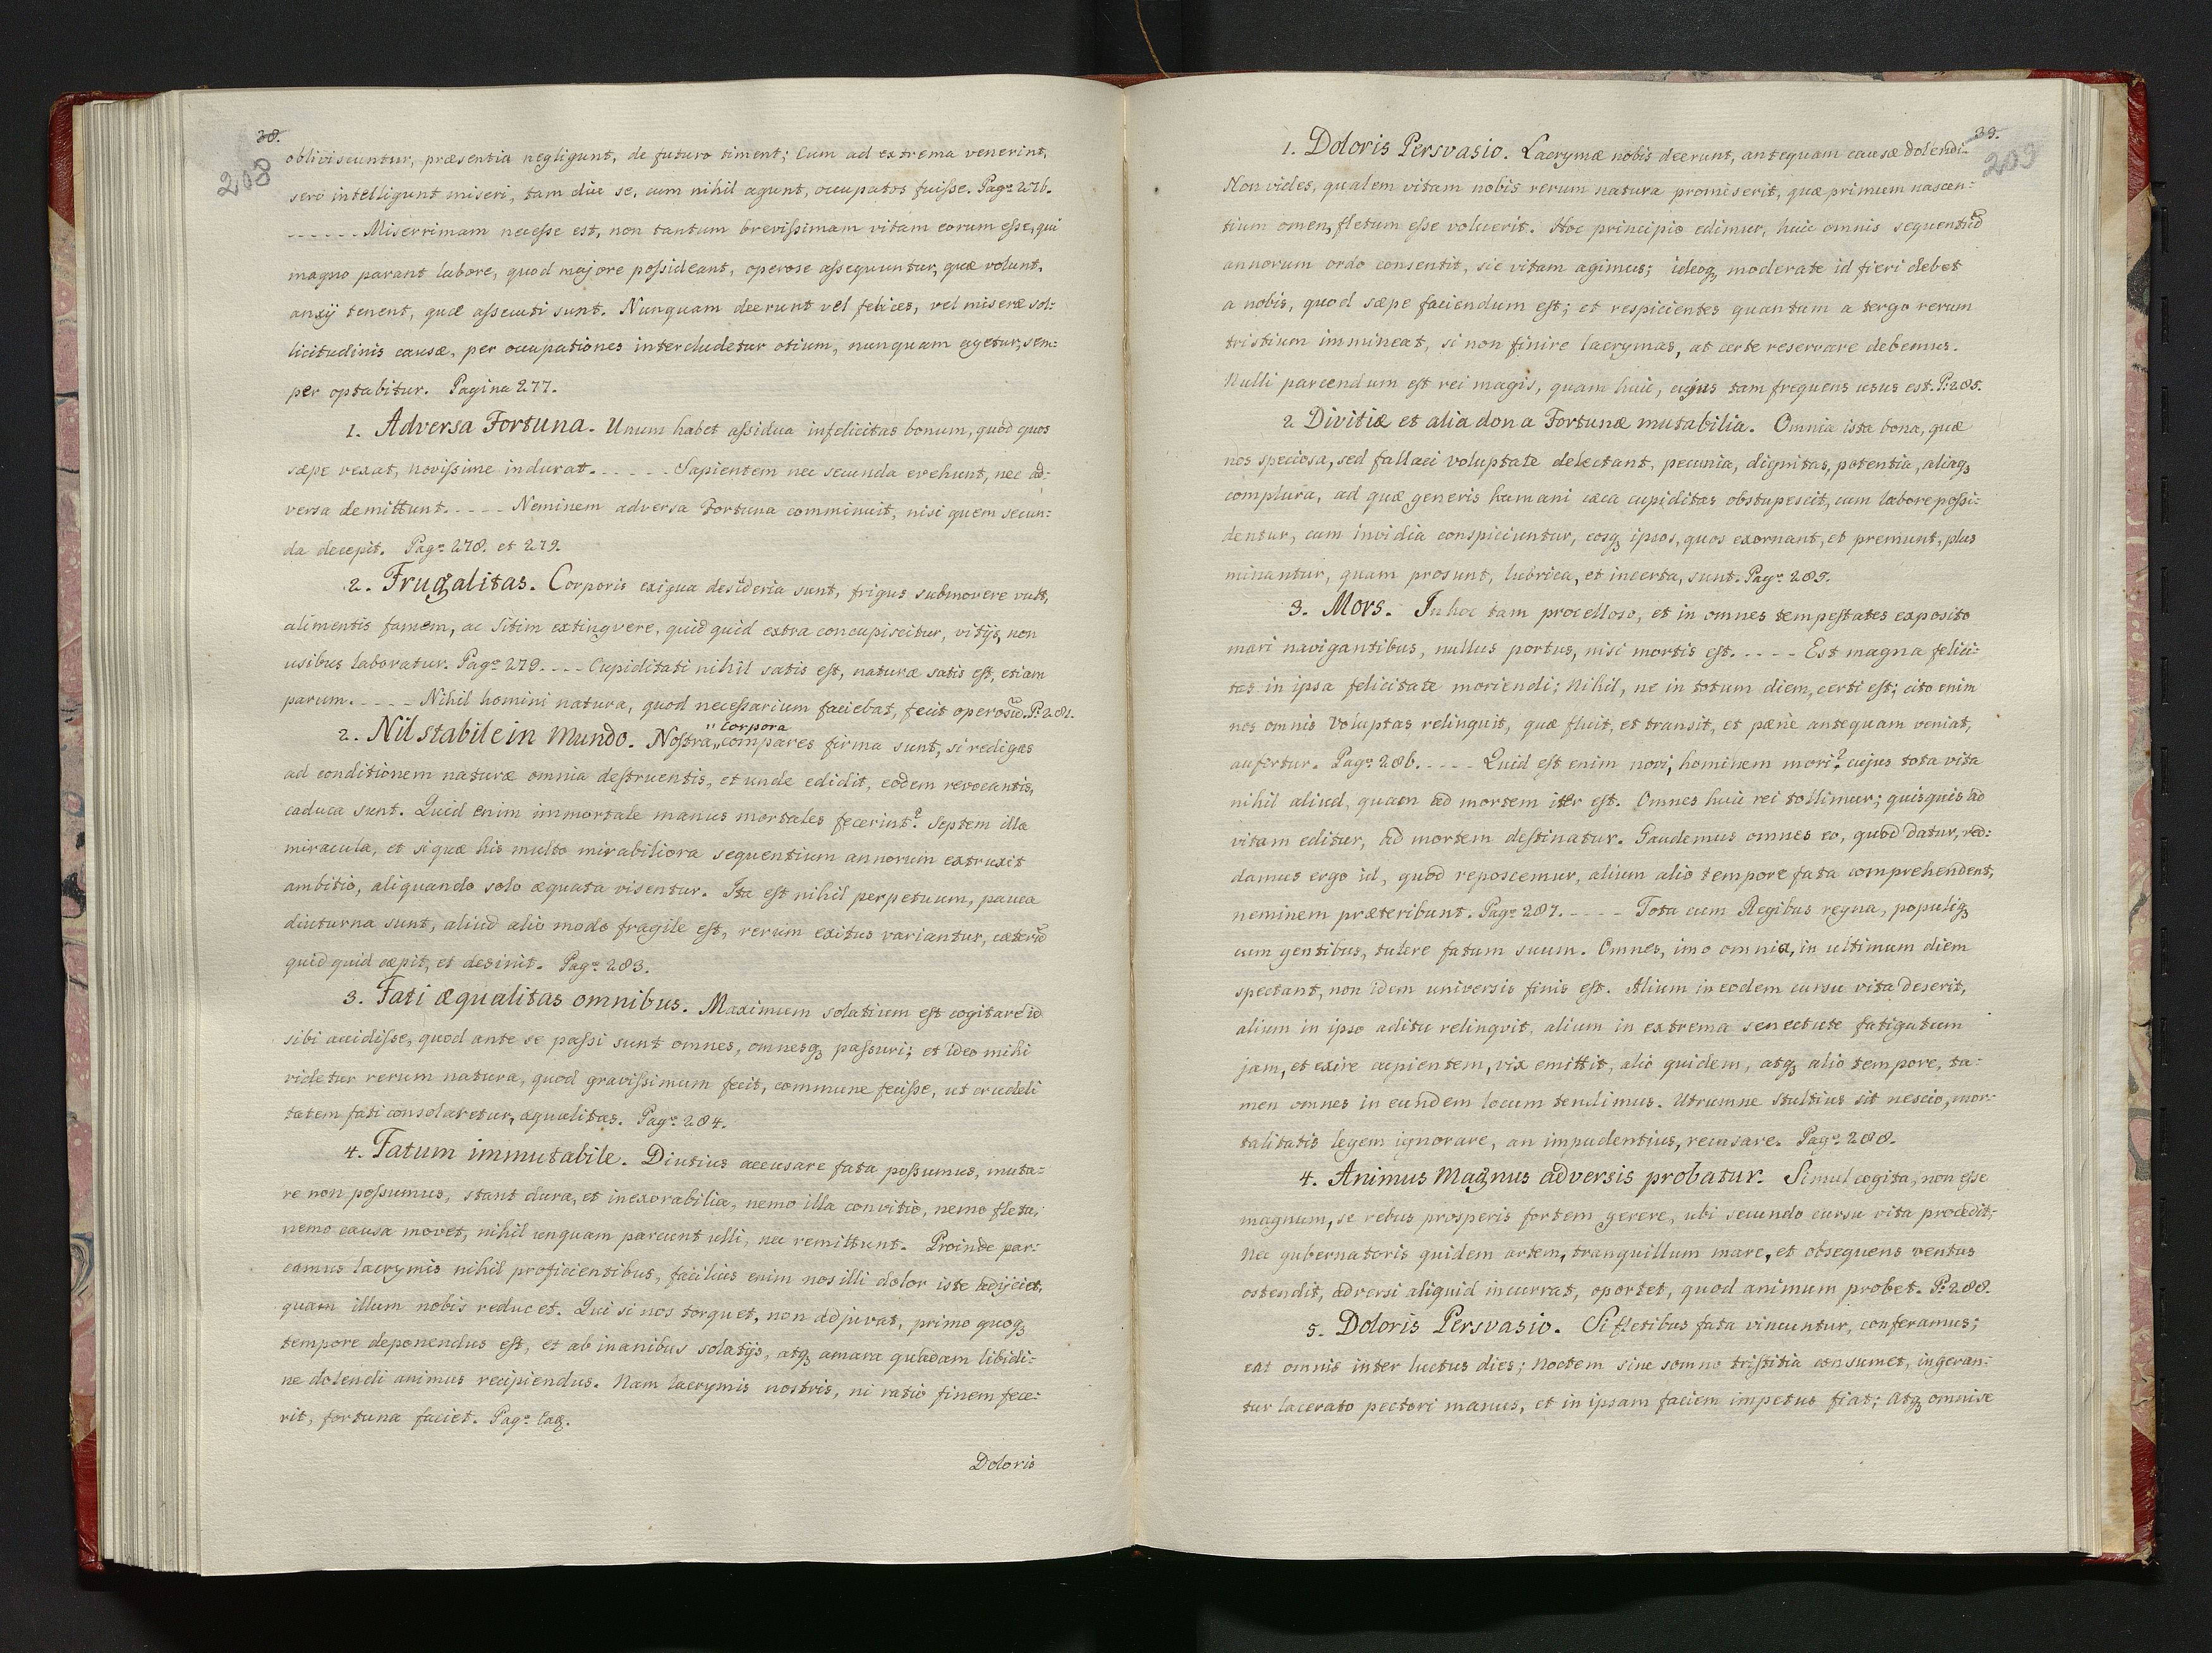 38.
208
obliviscuntur, præsentia negligunt, de futuro timent; Cum ad extrema venerint,
sero intelligunt miseri, tam diu se, cum nihil agunt, occupatos fuisse. Pag: 276.
------ Miserrimam necesse est, non tantum brevissimam vitam eorum esse, qui
magno parant labore, quod majore possideant, operose assequuntur, quæ volunt,
anxij tenent, quæ assecuti sunt. Nunquam deerunt vel felices, vel miseræ sol:
licitudinis causæ, per occupationes intercludetur otium, nunquam agetur, sem:
per optabitur. Pagina 277.
1. Adversa Fortuna. Unum habet assidua infelicitas bonum, quod quos
sæpe vexat, novissime indurat. ----- Sapientem nec secunda evehunt, nec ad:
versa demittunt. ---- Neminem adversa Fortuna comminuit, nisi quem secun:
da decepit. Pag: 278. et 279.
2. Frugalitas. Corporis exigua desideria sunt, frigus submovere vult,
alimentis famem, ac sitim extingvere, quidquid extra concupiscitur, vitijs, non
usibus laboratur. Pag: 279. --- Cupiditati nihil satis est, naturæ satis est, etiam
parum. ---- Nihil homini natura, quod necessarium faciebat, fecit operosū. P: 281.
" Corpora
2. Nil stabile in Mundo. Nostra,, compares firma sunt, si redigas
ad conditionem naturæ omnia destruentis, et unde edidit, eodem revocantis,
caduca sunt. Quid enim immortale manus mortales fecerint? Septem illa
miracula, et si quæ his multo mirabiliora sequentium annorum extruxit
ambitio, aliquando solo æquata visentur. Ita est nihil perpetuum, pauca
diuturna sunt, aliud alio modo fragile est, rerum exitus variantur, cæterū
quidquid cæpit, et desinit. Pag: 283.
3. Fati æqualitas omnibus. Maximum solatium est cogitare id
sibi accidisse, quod ante se passi sunt omnes, omnesq; passuri; et ideo mihi
videtur rerum natura, quod gravissimum fecit, commune fecisse, ut crudeli
tatem fati consolaretur, æqualitas. Pag: 284.
4. Fatum immutabile. Diutius accusare fata possumus, muta:
re non possumus, stant dura, et inexorabilia, nemo illa convitio, nemo fletu,
nemo causa movet, nihil unquam parcunt ulli, nec remittunt. Proinde par:
camus lacrymis nihil proficientibus, facilius enim nos illi dolor iste adijciet,
quam illum nobis reducet. Qui si nos torquet, non adjuvat, primo quoq;
tempore deponendus est, et ab inanibus solatijs, atq; amara quadam libidi:
ne dolendi animus recipiendus. Nam lacrymis nostris, ni ratio finem fece:
rit, fortuna faciet. Pag: Eaq.
Doloris
39.
209
1. Doloris Persvasio. Lacrymæ nobis deerunt, antequam causæ dolendi.
Non vides, qualem vitam nobis rerum natura promiserit, quæ primum nascen:
tium omen, fletum esse voluerit. Hoc principio edimur, huic omnis sequentiū
annorum ordo consentit, sic vitam agimus; ideoq; moderate id fieri debet
a nobis, quod sæpe faciendum est; et respicientes quantum a tergo rerum
tristium immineat, si non finire lacrymas, at certe reservare debemus.
Nulli parcendum est rei magis, quam huic, cujus tam frequens usus est. P: 285.
2 Divitiæ et alia dona Fortunæ mutabilia. Omnia ista bona, quæ
nos speciosa, sed fallaci voluptate delectant, pecunia, dignitas, potentia, aliaq;
complura, ad quæ generis humani cæca cupiditas obstupescit, cum labore possi:
dentur, cum invidia conspiciuntur, eosq; ipsos, quos exornant, et premunt, plus
minantur, quam prosunt, lubrica, et incerta, sunt. Pag: 285.
3. Mors. In hoc tam procelloso, et in omnes tempestates exposito
mari navigantibus, nullus portus, nisi mortis est. ---- Est magna felici:
tas in ipsa felicitate moriendi; Nihil, ne in totum diem, certi est; cito enim
nos omnis voluptas relinquit, quæ fluit, et transit, et pæne antequam veniat,
aufertur. Pag: 286. ---- Quid est enim novi, hominem mori? cujus tota vita
nihil aliud, quam ad mortem iter est. Omnes huic rei tollimur; quisquis ad
vitam editur, ad mortem destinatur. Gaudemus omnes eo, quod datur, red:
damus ergo id, quod reposcemur, alium alio tempore fata comprehendent,
neminem præteribunt. Pag: 287. ---- Tota cum Regibus regna, populiq;
cum gentibus, tulere fatum suum. Omnes, imo omnia, in ultimum diem
spectant, non idem universis finis est. Alium in eodem cursu vita deserit,
alium in ipso aditu relinqvit, alium in extrema senectute fatigatum
jam, et exire cupientem, vix emittit, alio quidem, atq; alio tempore, ta:
men omnes in eundem locum tendimus. Utrumne stultius sit nescio, mor:
talitatis legem ignorare, an impudentius, recusare. Pag: 288.
4. Animus Magnus adversis probatur. Simul cogita, non esse
magnum, se rebus prosperis fortem gerere, ubi secundo cursu vita procedit;
Nec gubernatoris quidem artem, tranquillum mare, et obsequens ventus
ostendit, adversi aliquid incurrat, oportet, quod animum probet. P: 288.
5. Doloris Persvasio. Si fletibus fata vincuntur, conferamus;
eat omnis inter luctus dies; noctem sine somno tristitia consumet, ingeran:
tur lacerato pectori manus, et in ipsam faciem impetus fiat; Atq; omnise